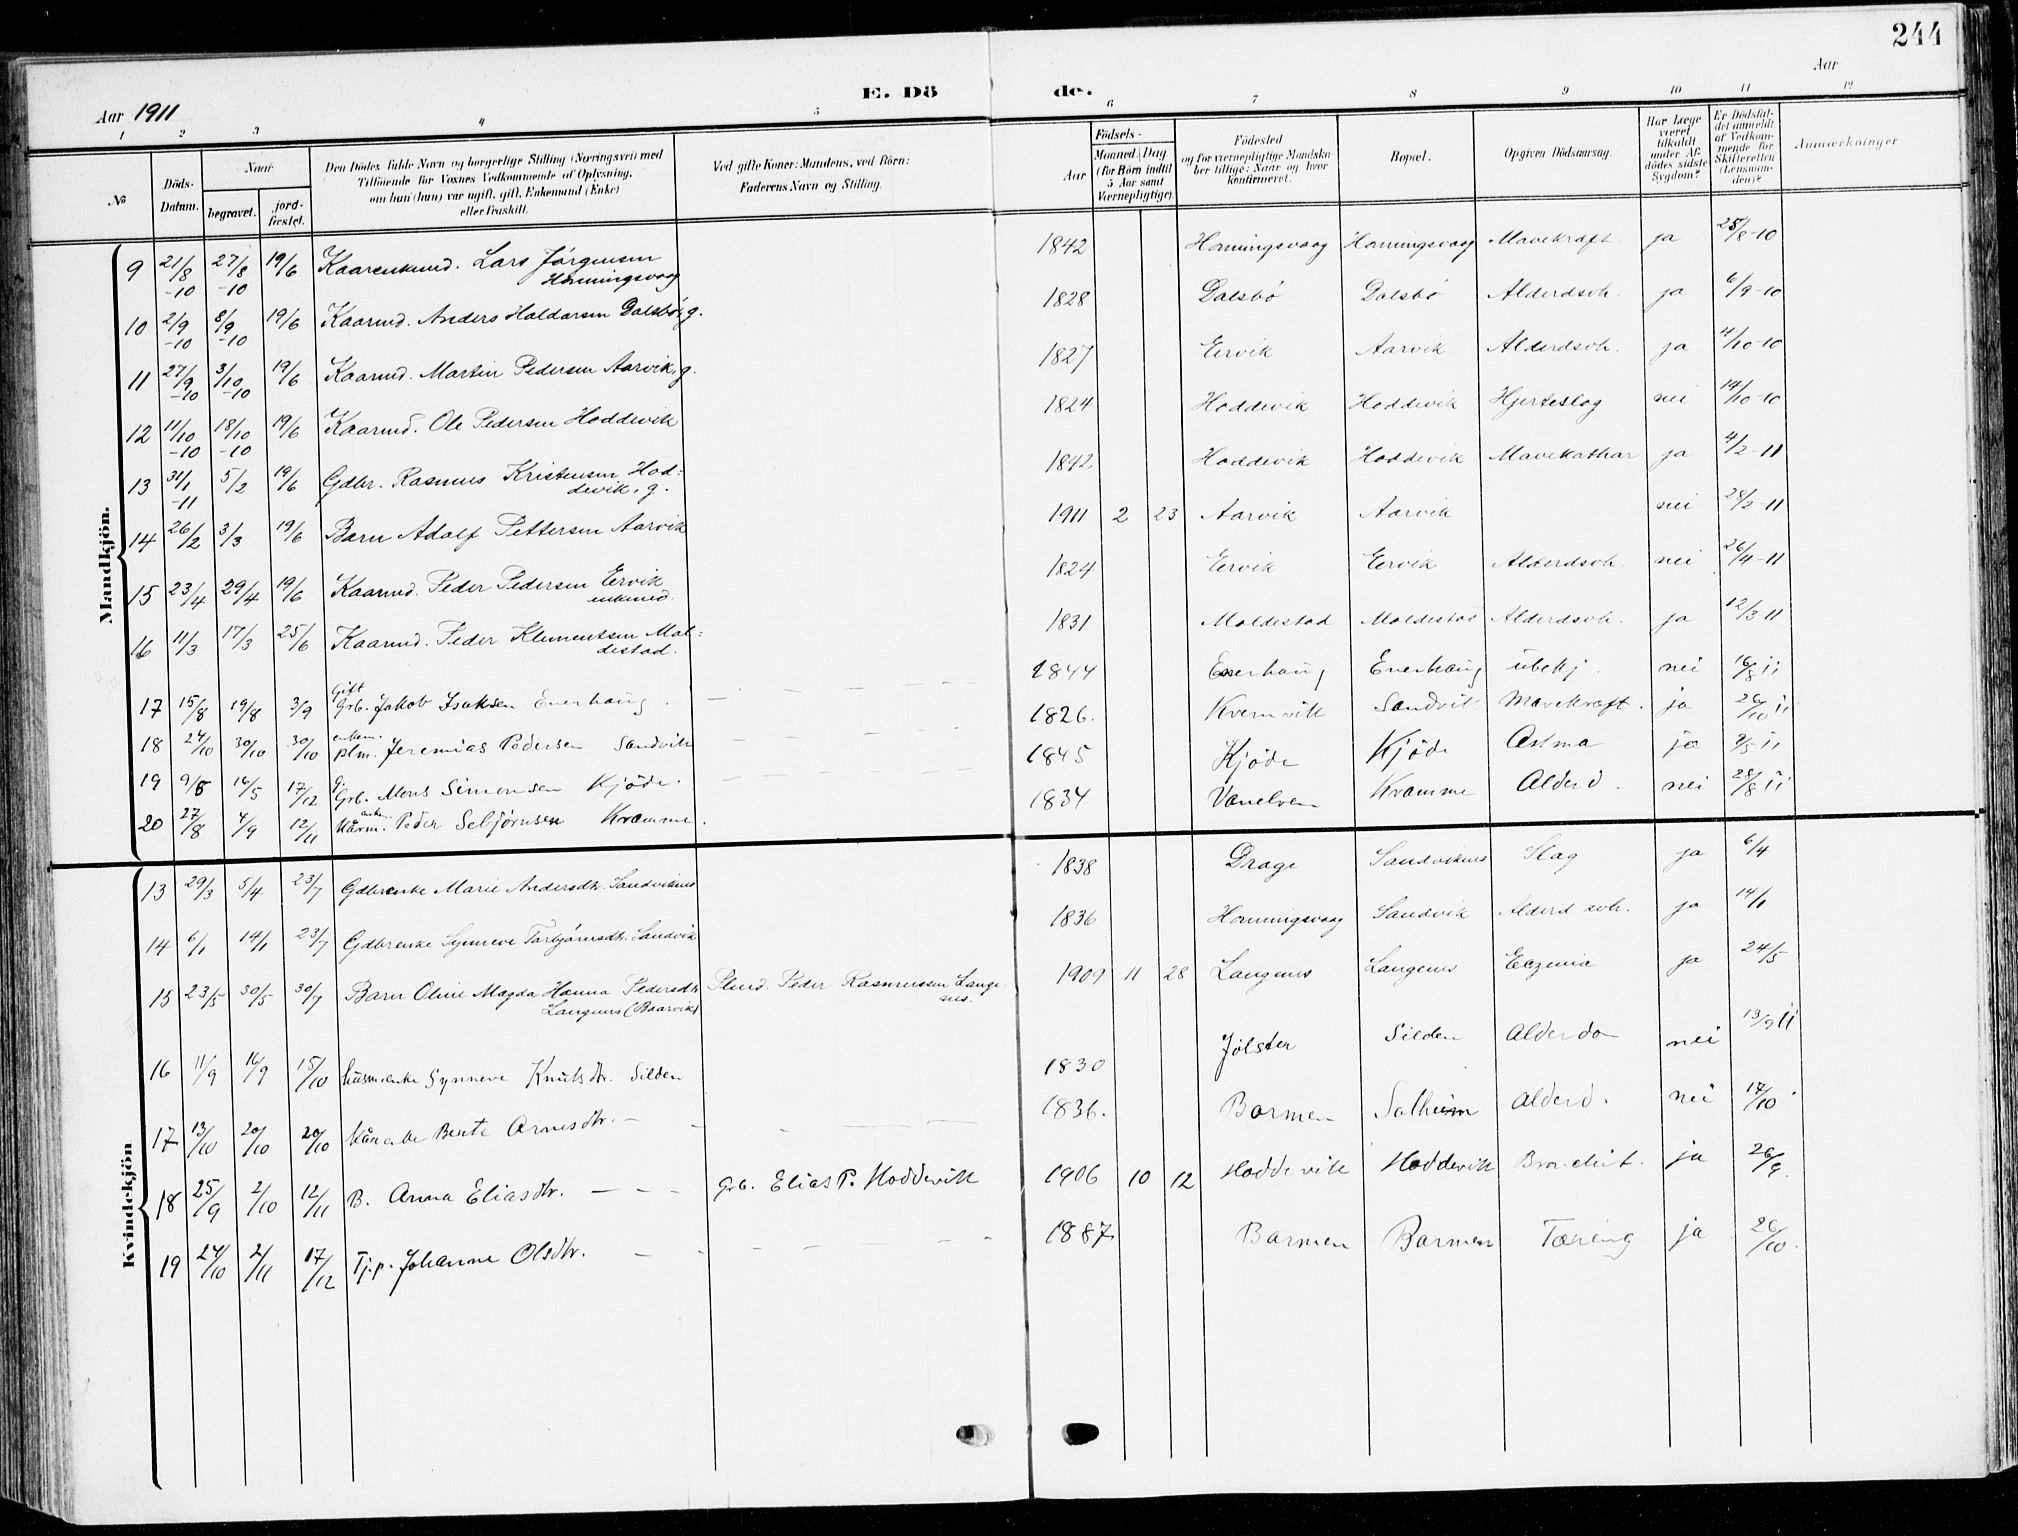 244
Aar 1911
E. Dö
de.
Aar
1 2 3 4 5 6 7 8 9 10 11 12
№
Döds-Datum.
Naar
begravet.
jord-fæstet.
Den Dödes fulde Navn og borgerlige Stilling (Næringsvei) med
Tilföiende for Voxnes Vedkommende af Oplysning,
om han (hun) var ugift, gift, Enkemand (Enke)
eller fraskilt.
Ved gifte Koner: Mandens, ved Börn:
Faderens Navn og Stilling.
Födsels-
Aar
Maaned. Dag
(for Börn indtil
5 Aar samt
Værnepligtige).
Födested
og for værnepligtige Mandska-
ber tillige: Naar og hvor
konfirmeret.
Bopæl.
Opgiven Dödsaarsag.
Har Læge
været
tilkaldt
under Af-
dödes sidste
Sygdom?
Er Dödsfal-
det anmeldt
af Vedkom-
mende for
Skifteretten
(Lensman-
den)?
Anmærkninger
Mandkjön.
9 21/8 -10 27/8 -10 19/6 Kaarenkmd. Lars Jørgensen Honningsvaag 1842 Honningsvaag Honningsvaag Mavekræft. ja 25/8-10
10 2/9 -10 8/9 -10 19/6 Kaarmd. Anders Haldorsen Dalsbö, g. 1828 Dalsbö Dalsbö Alderdsvh. ja 6/9-10
11 27/9 -10 3/10 -10 19/6 Kaarmd. Martin Pedersen Aarvik, g. 1827 Ervik Aarvik Alderdsvh. ja 4/10-10
12 11/10 -10 18/10 -10 19/6 Kaarmd. Ole Pedersen Hoddevik 1824 Hoddevik Hoddevik Hjerteslag nei 14/10-10
13 31/1 -11 5/2 19/6 Gdbr. Rasmus Kristensen Hod:
devik, g. 1842 Hoddevik Hoddevik Mavekathar ja 4/2-11
14 26/2 3/3 19/6 Barn Adolf Pettersen Aarvik 1911 2 23 Aarvik Aarvik nei 28/2-11
15 23/4 29/4 19/6 Kaarmd. Peder Pedersen Ervik
enkmd. 1824 Ervik Ervik Alderdsvh. nei 26/4-11
16 11/3 17/3 25/6 Kaarmd. Peder Klementsen Mol:
destad. 1831 Moldestad Moldestad Alderdsvh. ja 12/3 11
17 15/8 19/8 3/9 Gift Grb. Jakob Isaksen Enerhaug. 1844 Enerhaug Enerhaug ubekj. nei 16/8 11
18 24/10 30/10 30/10 enkem. plm. Jeremias Pedersen Sandvik 1826. Kvernvik Sandvik Mavekræft. ja 26/10 11
19 9/5 16/5 17/12 g. Grb. Mons Simonsen Kjöde. 1845 Kjöde Kjöde Astma ja 9/5-11
20 27/8 4/9 12/11 Kårm. Peder Sebjørnsen Kramme. 1834 Vanelven Kramme Alderd. nei 28/8 11
Kvindekjön
13 29/3 5/4 23/7 Gdbrenke Marie Andersdtr. Sandviknes 1838 Drage Sandviknes Slag ja 6/4
14 6/1 14/1 23/7 Gdbrenke Synneve Torbjørnsdtr. Sandvik 1836 Honningsvaag Sandvik Alderd svh. ja 14/1
15 23/5 30/5 30/7 Barn Oline Magda Hanna Pedersdtr
Langenes (Baarvik) Plmd. Peder Rasmussen Lange
nes. 1909 11 28 Langenes Langenes Eczema ja 24/5
16 11/9 16/9 15/10 husm.enke Synneve Knutsdtr. Silden 1830 Jölster Silden Alderdom nei 13/9 11
17 13/10 20/10 20/10 Kårenke Bente Arnesdtr. 1836. Barmen Salheim Alderd. nei 17/10.
18 25/9 2/10 12/11 B. Anna Eliasdtr. Grb. Elias P. Hoddevik 1906 10 12 Hoddevik Hoddevik Bronchit. ja 26/9.
19 24/10 2/11 17/12 Tj.p. Johanne Olsdtr. 1887. Barmen Barmen Tæring ja 26/10.